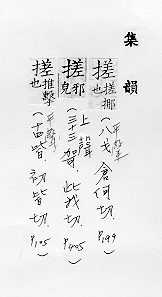 集韻
搓搓挪也(平聲八戈,倉何切.P.199)
搓邪皃(上聲三十三哿,此我切.P405)
搓推擊也(平聲十四皆,初皆切.P.105)